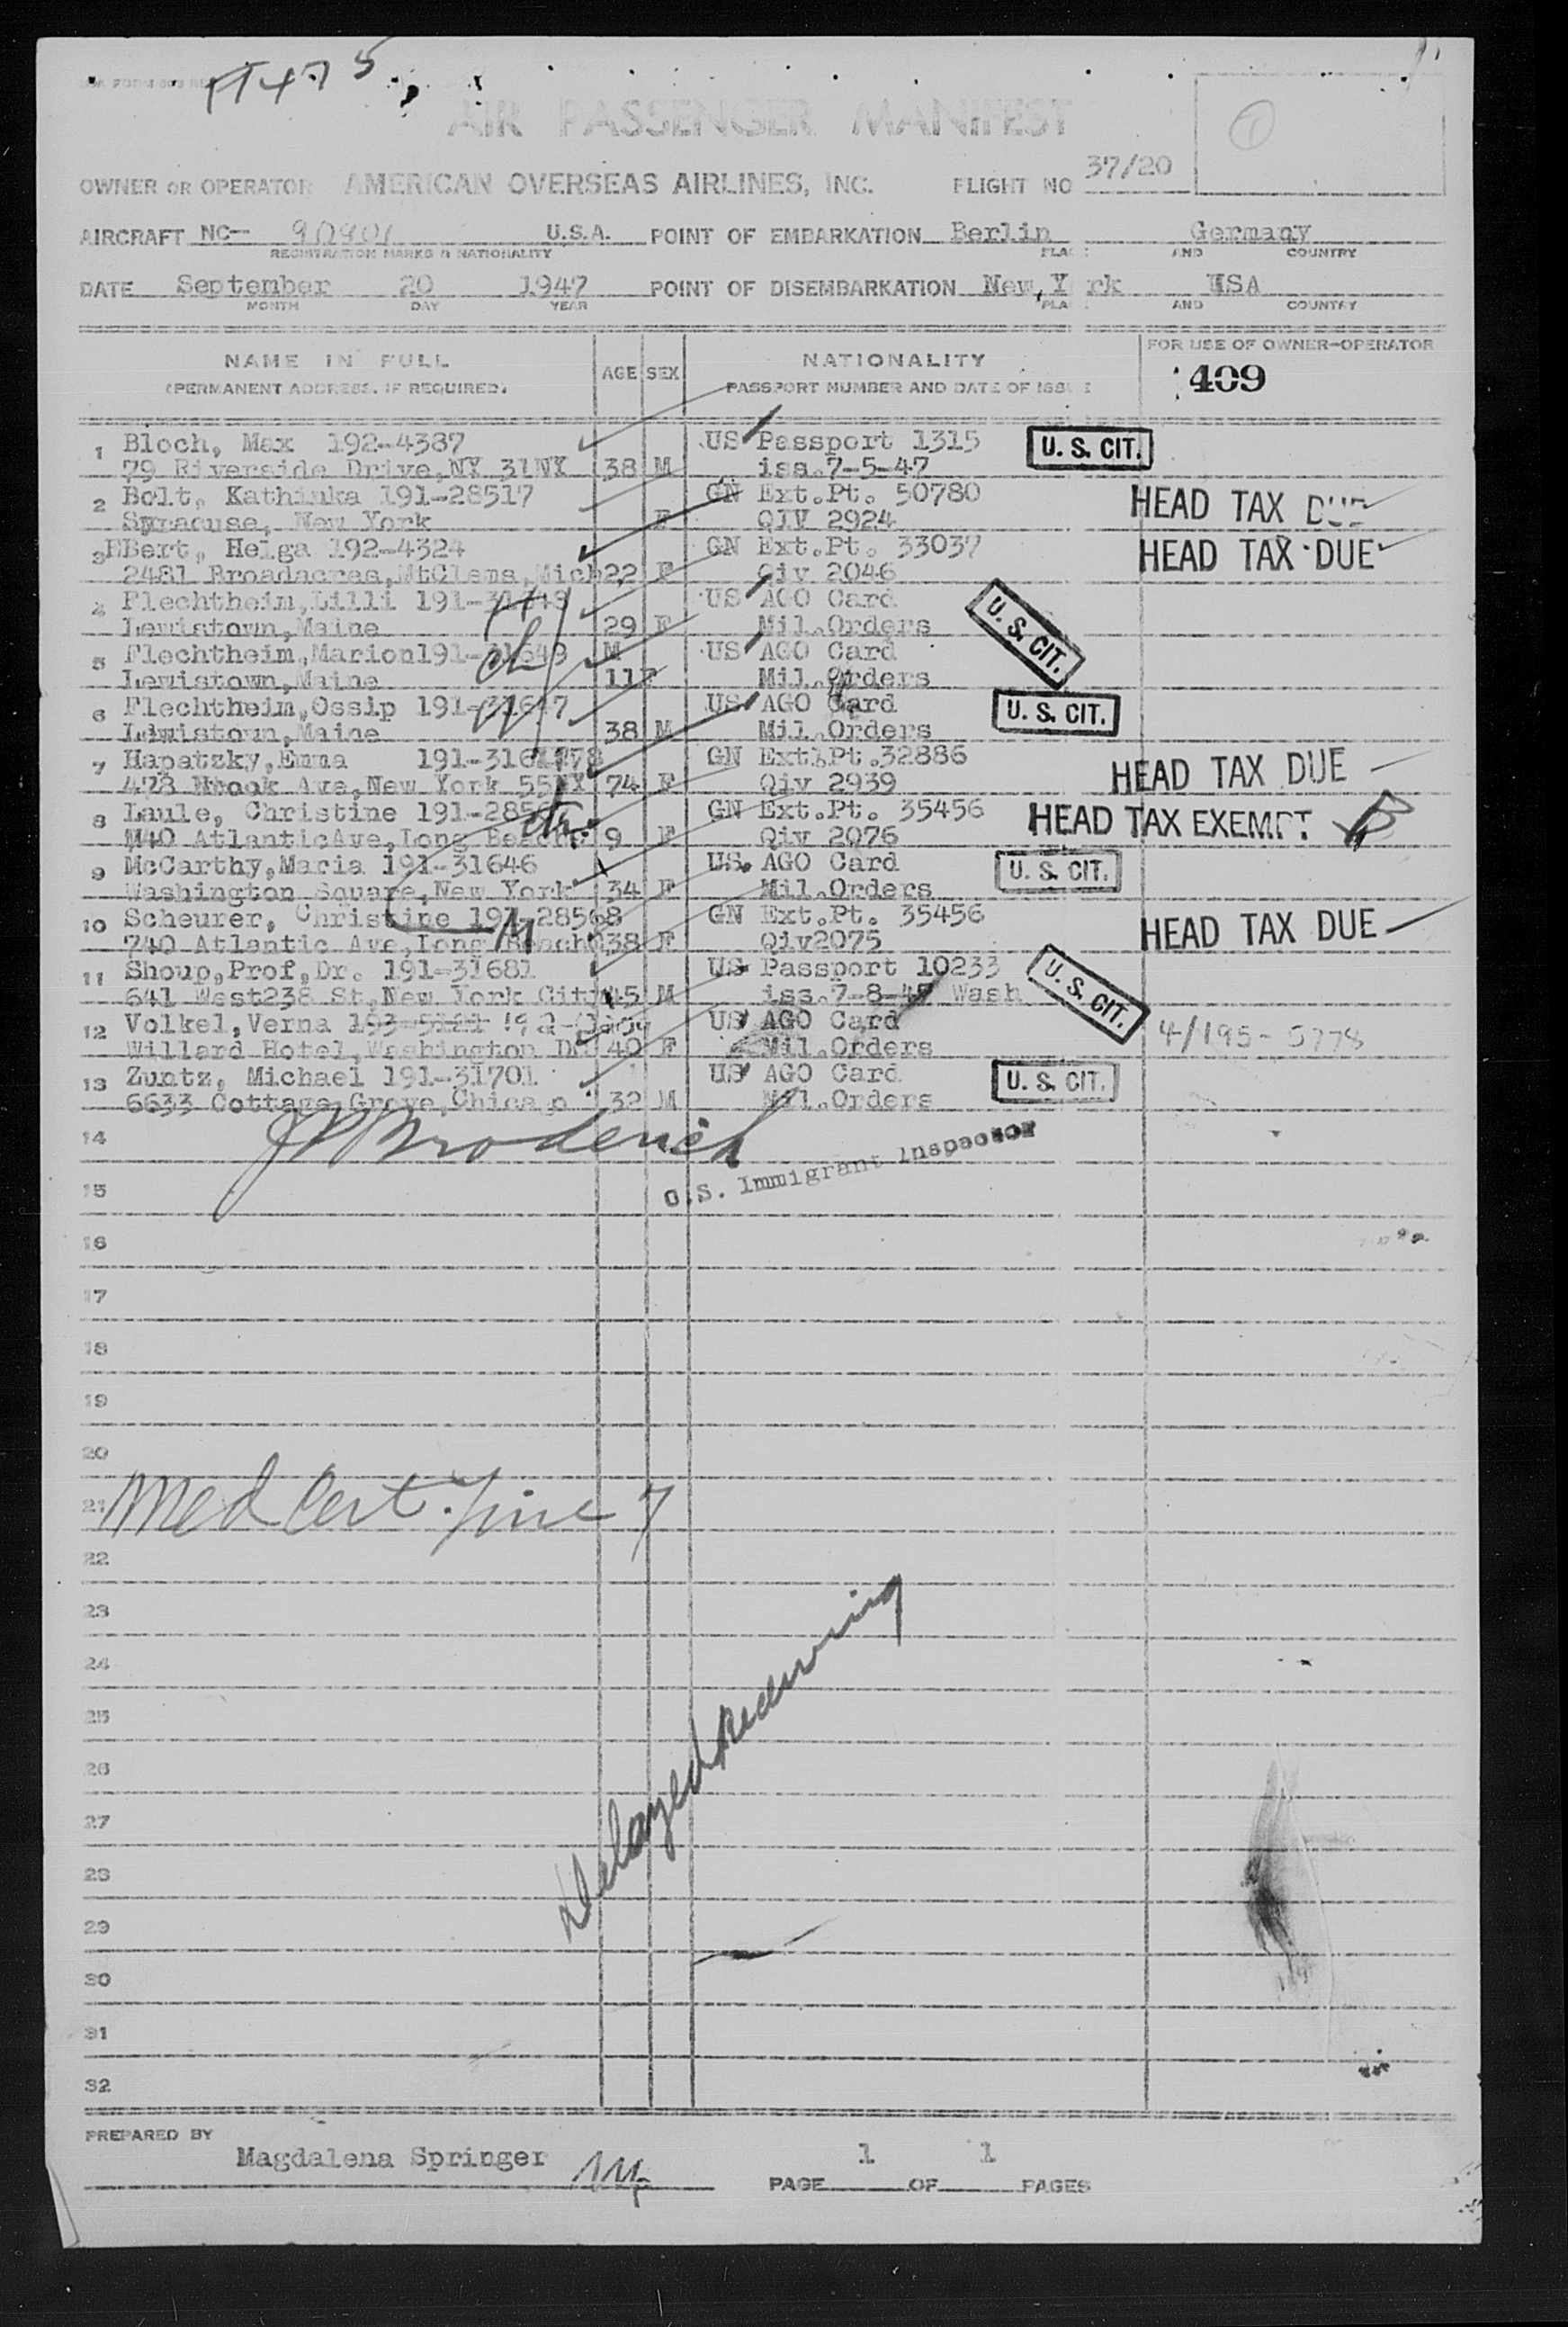 AIR PASSENGER MANIFEST
37/20
OWNER OR OPERATOR AMERICAN OVERSEAS AIRLINES, INC. FLIGHT NO
AIRCRAFT NC- 90901 U.S.A. POINT OF EMBARKATION Berlin Germany
REGISTRATION MARKS & NATIONALITY AND COUNTRY
DATE September 20 1947 POINT OF DISEMBARKATION New York USA
MONTH DAY YEAR AND COUNTRY
NAME IN FULL AGE SEX NATIONALITY FOR USE OF OWNER-OPERATOR
(PERMANENT ADDRESS, IF REQUIRED) PASSPORT NUMBER AND DATE OF 409
1 Bloch, Max 192-4387 US Passport 1315 U. S. CIT.
79 Riverside Drive,NY 31NY 38 M iss.7-5-47
2 Bolt, Kathinka 191-28517 GN Ext.Pt. 50780 HEAD TAX DUE
Syracuse, New York F QIV 2924
3 EBert, Helga 192-4324 GN Ext.Pt. 33037 HEAD TAX DUE
2481 Broadacres,MtClems,Mich 22 F Qiv 2046
4 Flechtheim,Lilli US AGO Card U. S. CIT.
Lewistown,Maine 29 F Mil.Orders
5 Flechtheim,Marion US AGO Card
Lewistown,Maine Mil.Orders
6 Flechtheim,Ossip US AGO Card U. S. CIT.
Lewistown,Maine 38 M Mil.Orders
7 Hapatzky,Emma GN Ext.Pt.32886 HEAD TAX DUE
Ave,New York 74 F Qiv 2939
8 Laule, Christine GN Ext.Pt. 35456 HEAD TAX EXEMPT
AtlanticAve,Long Beach 9 F Qiv 2076
9 McCarthy,Maria 191-31646 US. AGO Card U. S. CIT.
Washington Square,New York 34 F Mil.Orders
10 Scheurer, Christine 191-28568 GN Ext.Pt. 35456 HEAD TAX DUE
740 Atlantic Ave,Long Beach 38 F Qiv2075
11 Shoup,Prof,Dr. 191-31681 US Passport 10233 U. S. CIT.
641 West238 St,New York City 45 M iss.7-8-47 Wash
12 Volkel,Verna US AGO Card 4/195-5778
Willard Hotel,Washington DC 40 F Mil.Orders
13 Zuntz, Michael 191-31701 US AGO Card U. S. CIT.
6633 Cottage Grove, 32 M Mil.Orders
14 Broderick
15 U.S. Immigrant Inspector
16
17
18
19
20
21 Med Cert. line 7
22
23
24
25
26
27
28
29
30
31
32
Delayed
PREPARED BY
Magdalena Springer
PAGE 1 OF 1 PAGES